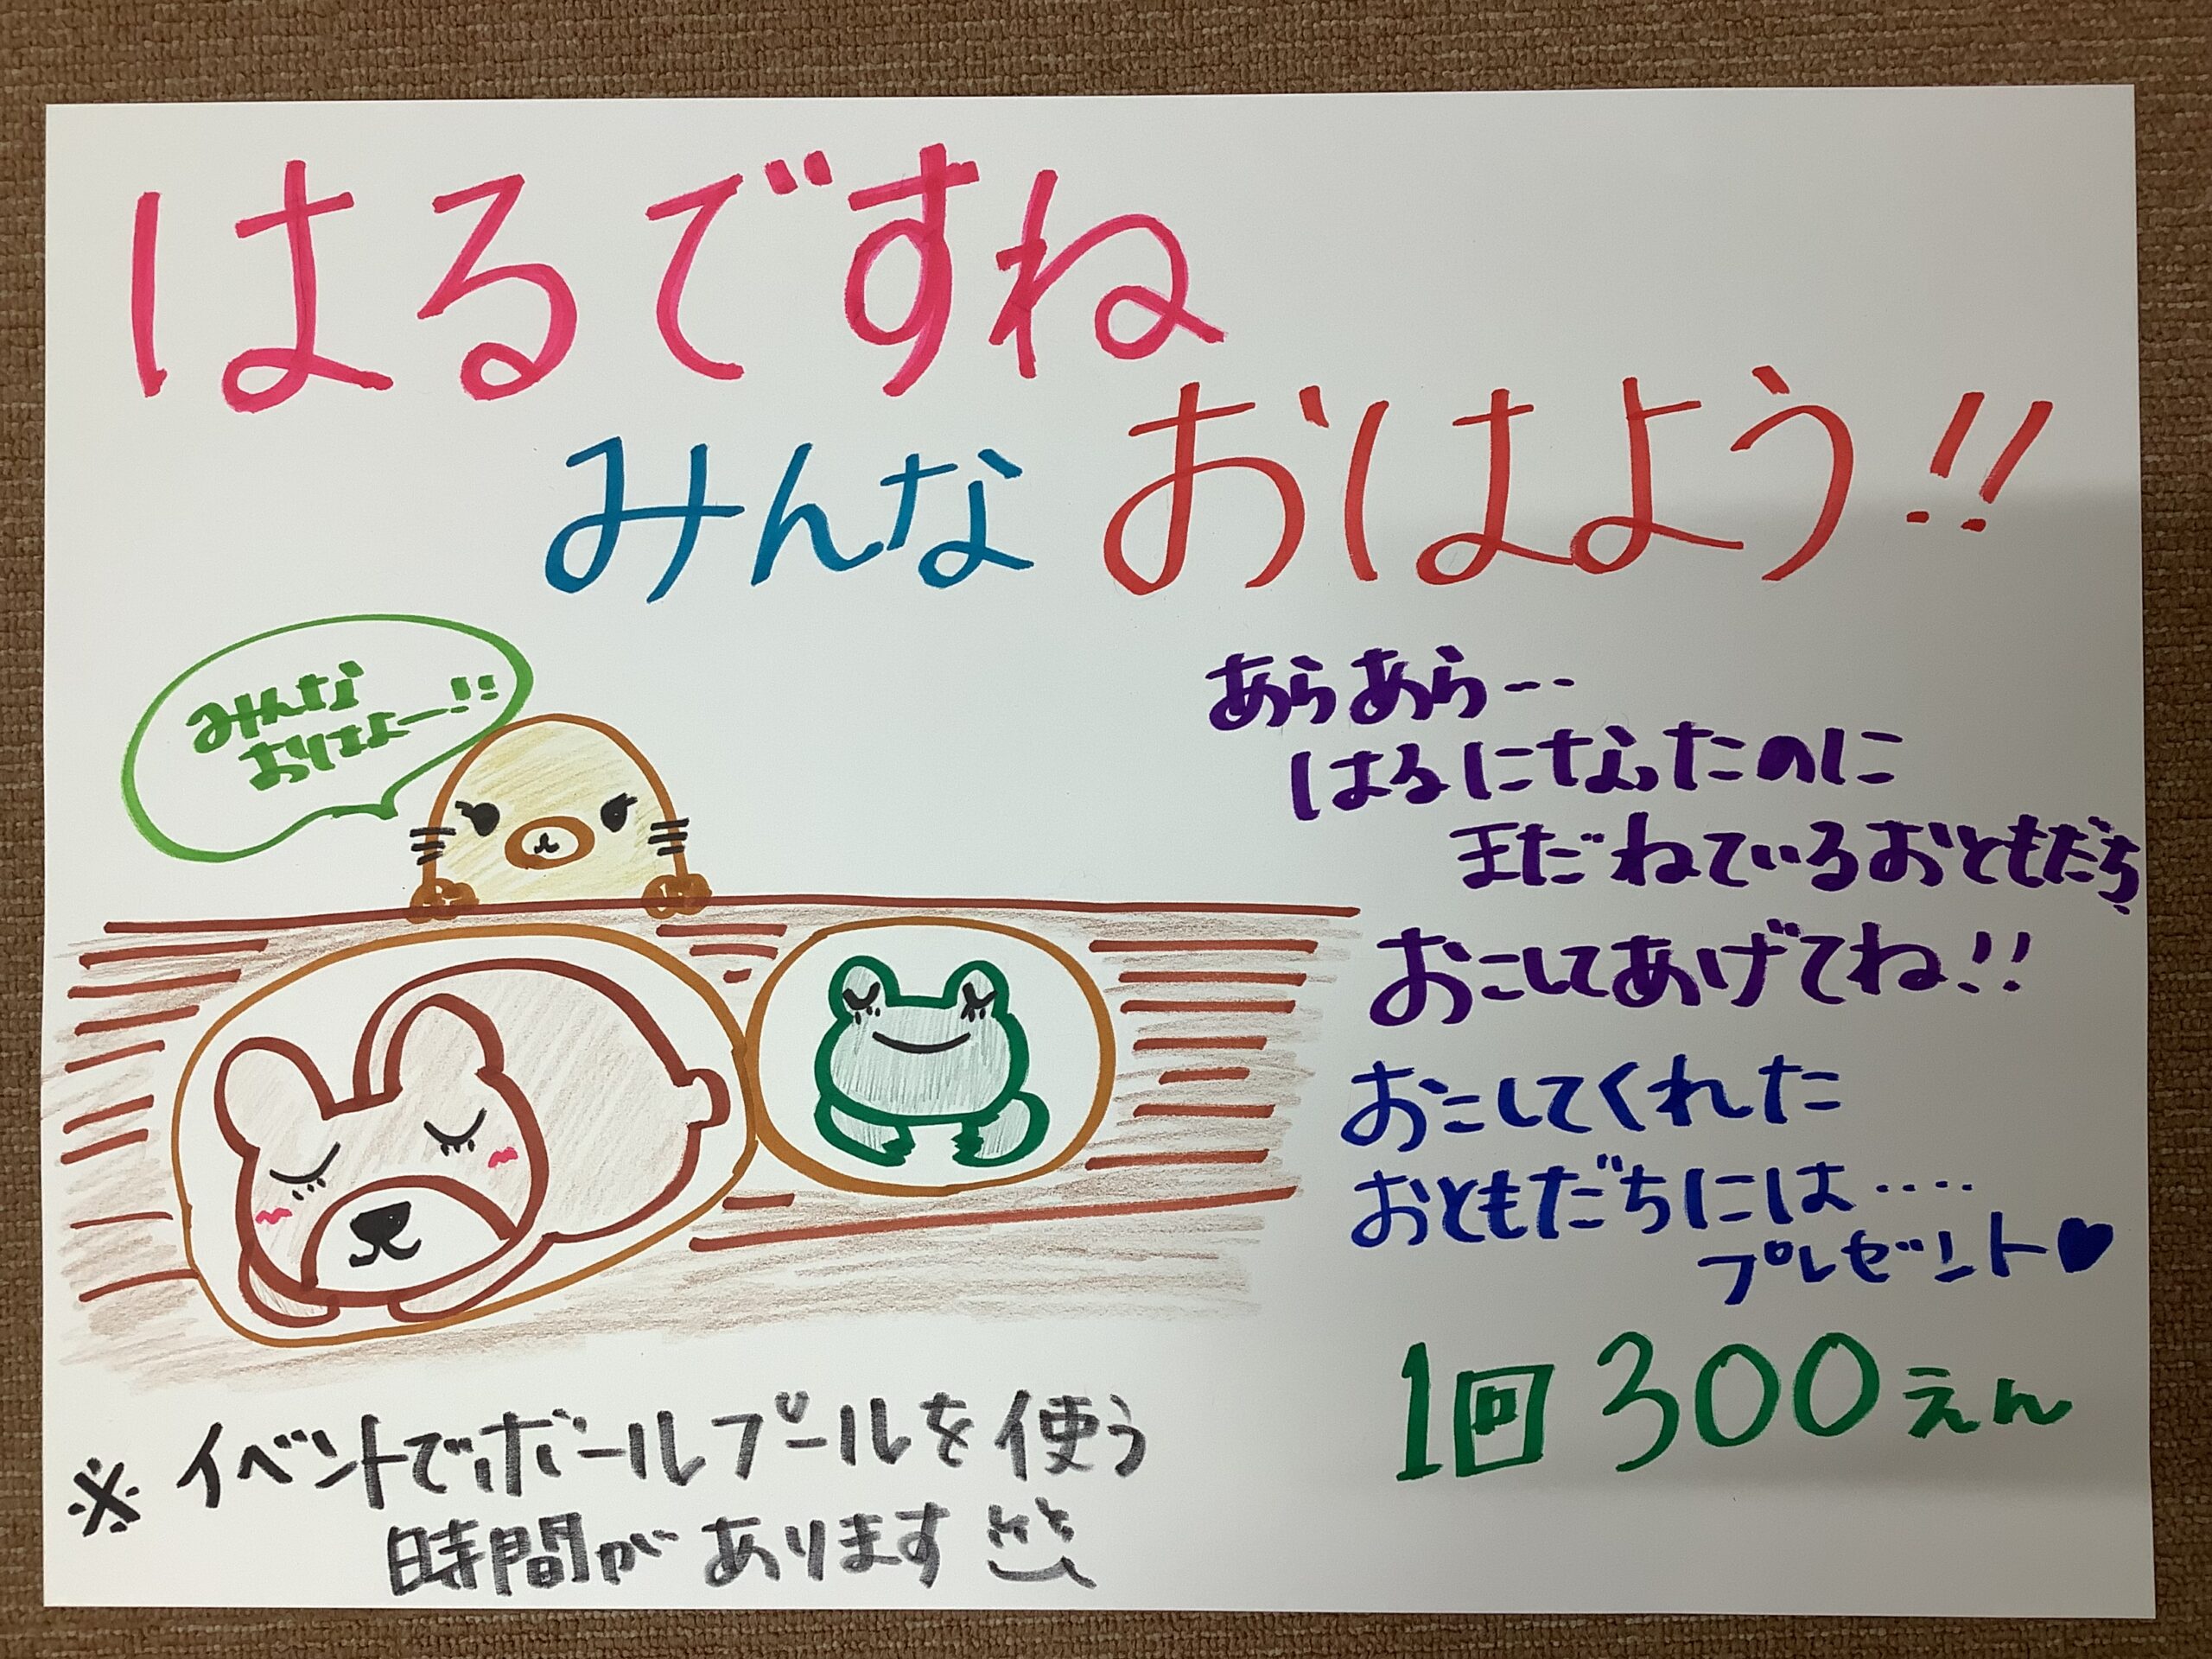 はるですね
みんな おはよう!!
みんな
おはよー!!
あらあら…
はるになったのに
まだねているおともだち
おこしてあげてね!!
おこしてくれた
おともだちには‥‥
プレゼント♥
1回 300えん
※ イベントでボールプールを使う
時間があります